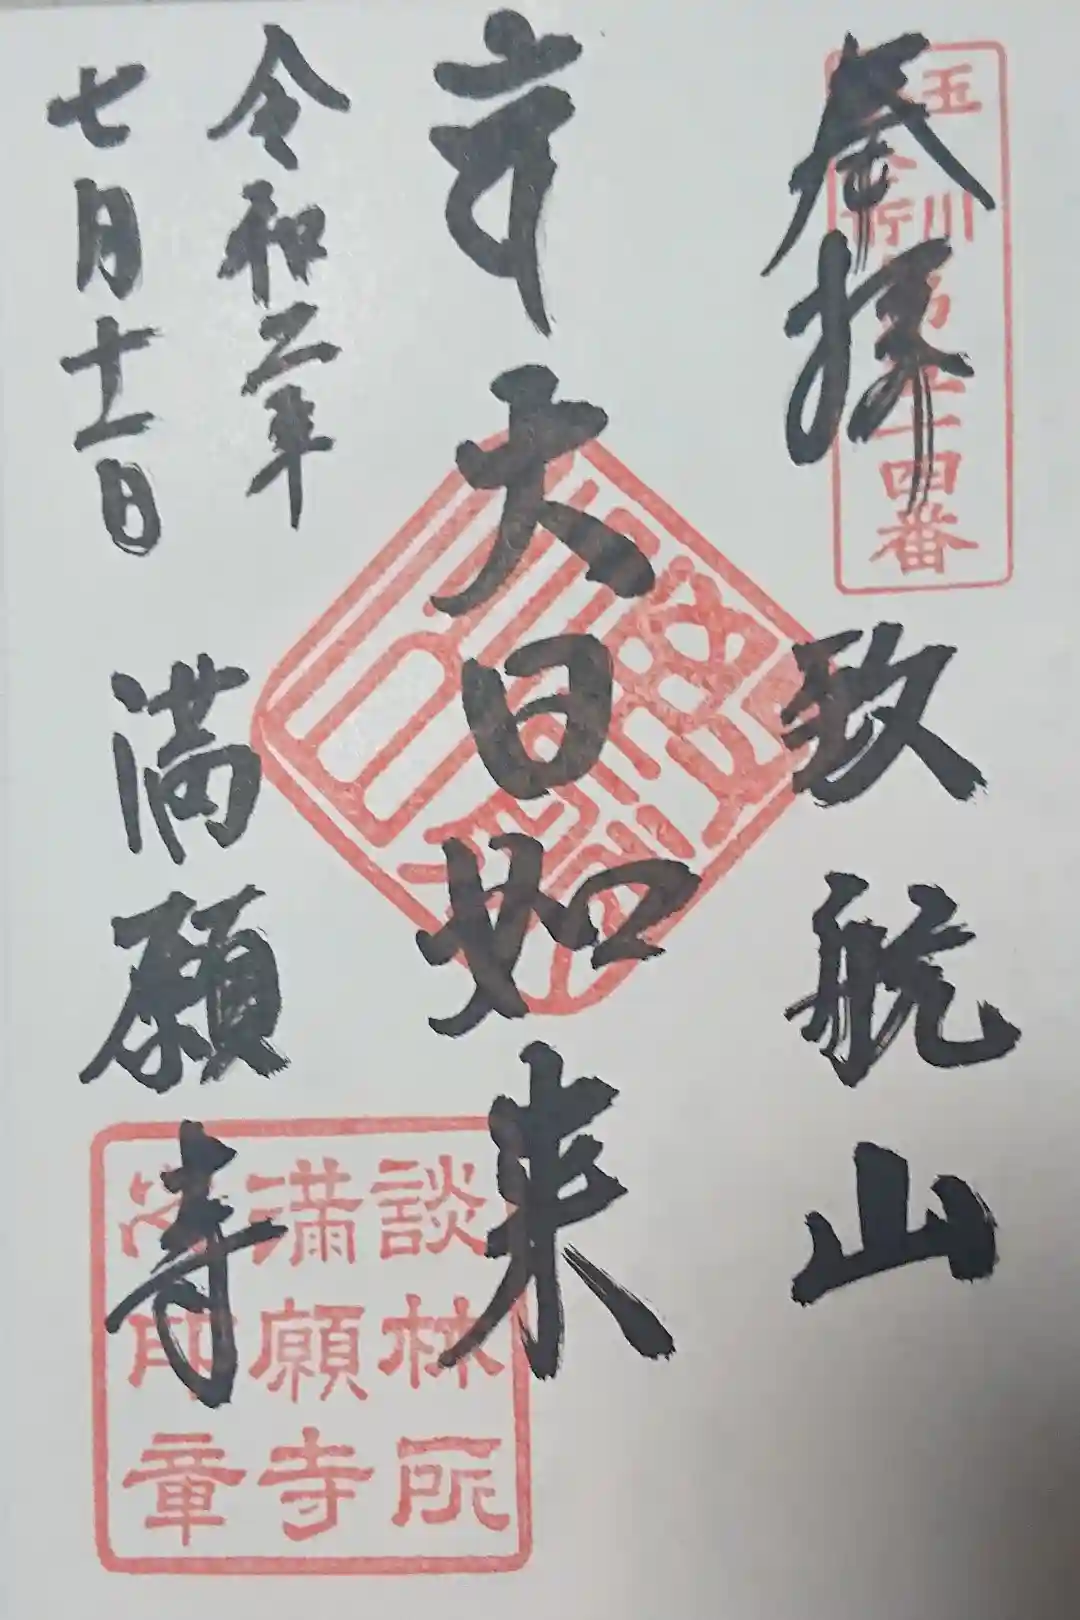 奉拝
玉川
第五十四番
致航山
大日如来
令和二年
七月十一日
満願寺
談林所
満願寺
印章